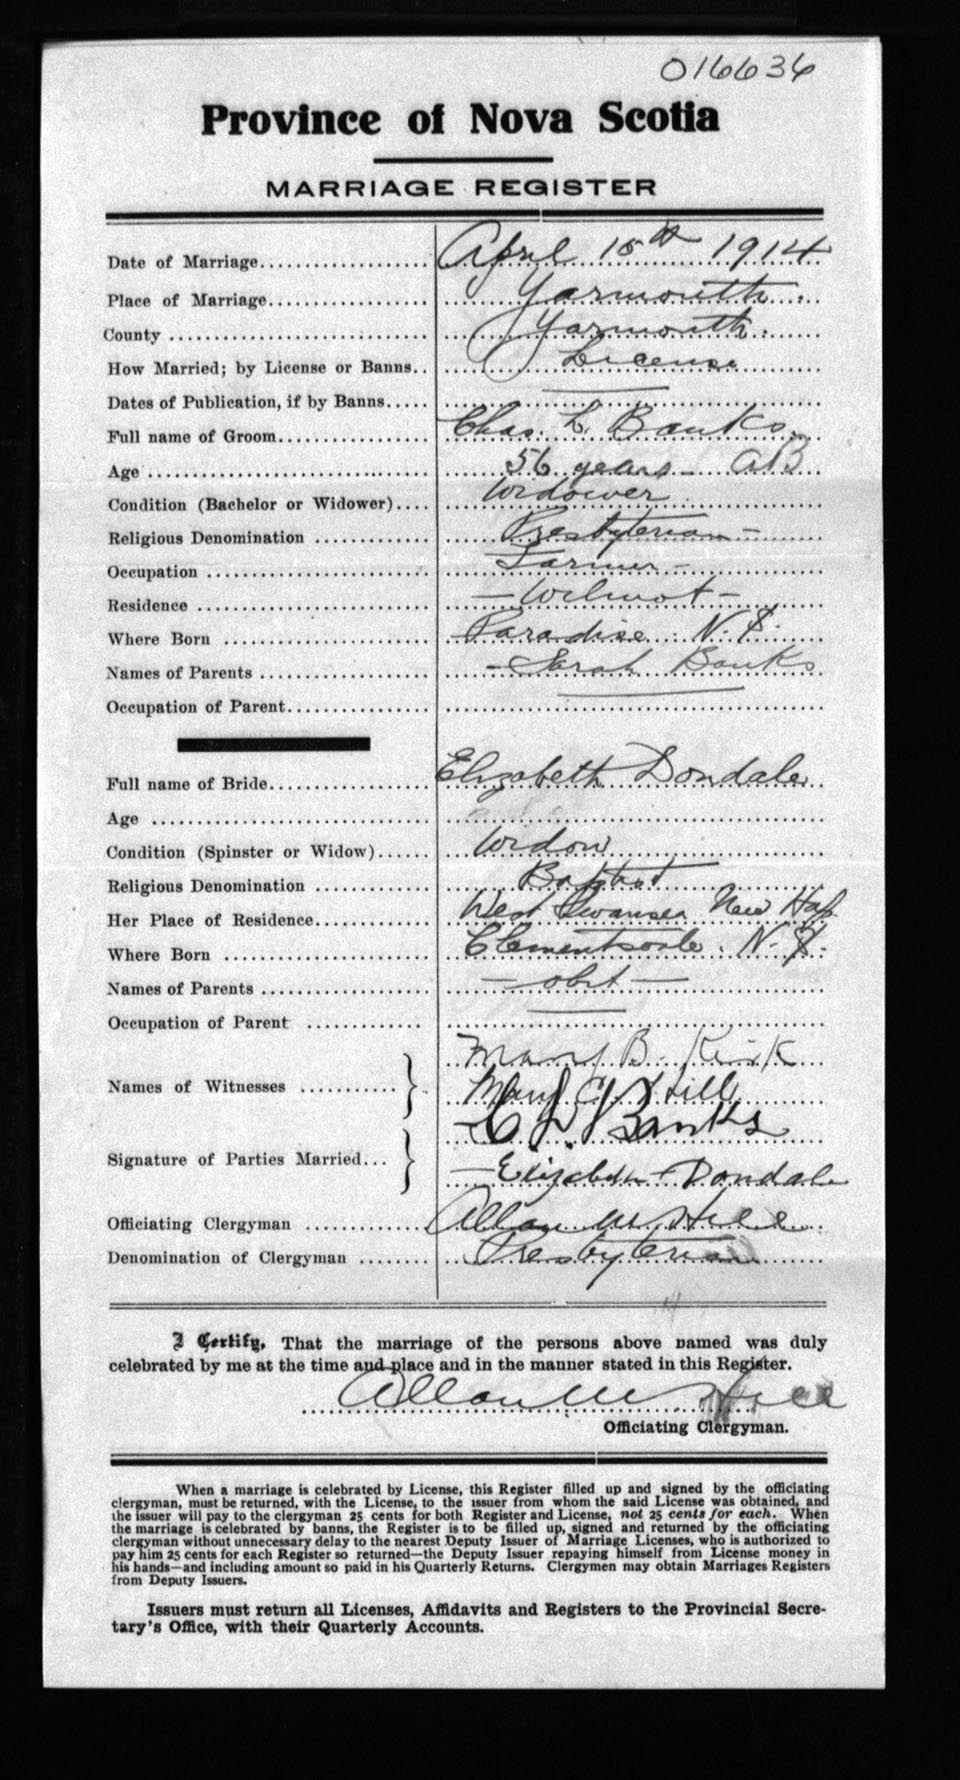 016636
Province of Nova Scotia
MARRIAGE REGISTER
Date of Marriage.................... April 15th 1914
Place of Marriage................... Yarmouth
County ............................. Yarmouth
How Married; by License or Banns.. License
Dates of Publication, if by Banns..... 
Full name of Groom.................. Chas. L. Banks
Age ................................ 56 years - 
Condition (Bachelor or Widower).... Widower
Religious Denomination ............. Presbyterian -
Occupation ......................... Farmer -
Residence .......................... - Wilmot -
Where Born ......................... Paradise N.S.
Names of Parents ................... - Sarah Banks
Occupation of Parent................
Full name of Bride.................. Elizabeth Dondale
Age ................................
Condition (Spinster or Widow)...... Widow
Religious Denomination ............. Baptist
Her Place of Residence.............. West Swansea New Hap
Where Born ......................... Clementsvale. N.S.
Names of Parents ...................
Occupation of Parent ...............
Names of Witnesses ........... Mary B. Kirk
Mary C. Hill
Signature of Parties Married... C L. Banks
- Elizabeth Dondale
Officiating Clergyman .............. Allan M. Hill
Denomination of Clergyman ........ Presbyterian
I Certify, That the marriage of the persons above named was duly
celebrated by me at the time and place and in the manner stated in this Register.
Allan M. Hill
Officiating Clergyman.
When a marriage is celebrated by License, this Register filled up and signed by the officiating
clergyman, must be returned, with the License, to the issuer from whom the said License was obtained, and
the issuer will pay to the clergyman 25 cents for both Register and License, not 25 cents for each. When
the marriage is celebrated by banns, the Register is to be filled up, signed and returned by the officiating
clergyman without unnecessary delay to the nearest Deputy Issuer of Marriage Licenses, who is authorized to
pay him 25 cents for each Register so returned—the Deputy Issuer repaying himself from License money in
his hands—and including amount so paid in his Quarterly Returns. Clergymen may obtain Marriages Registers
from Deputy Issuers.
Issuers must return all Licenses, Affidavits and Registers to the Provincial Secre-
tary's Office, with their Quarterly Accounts.